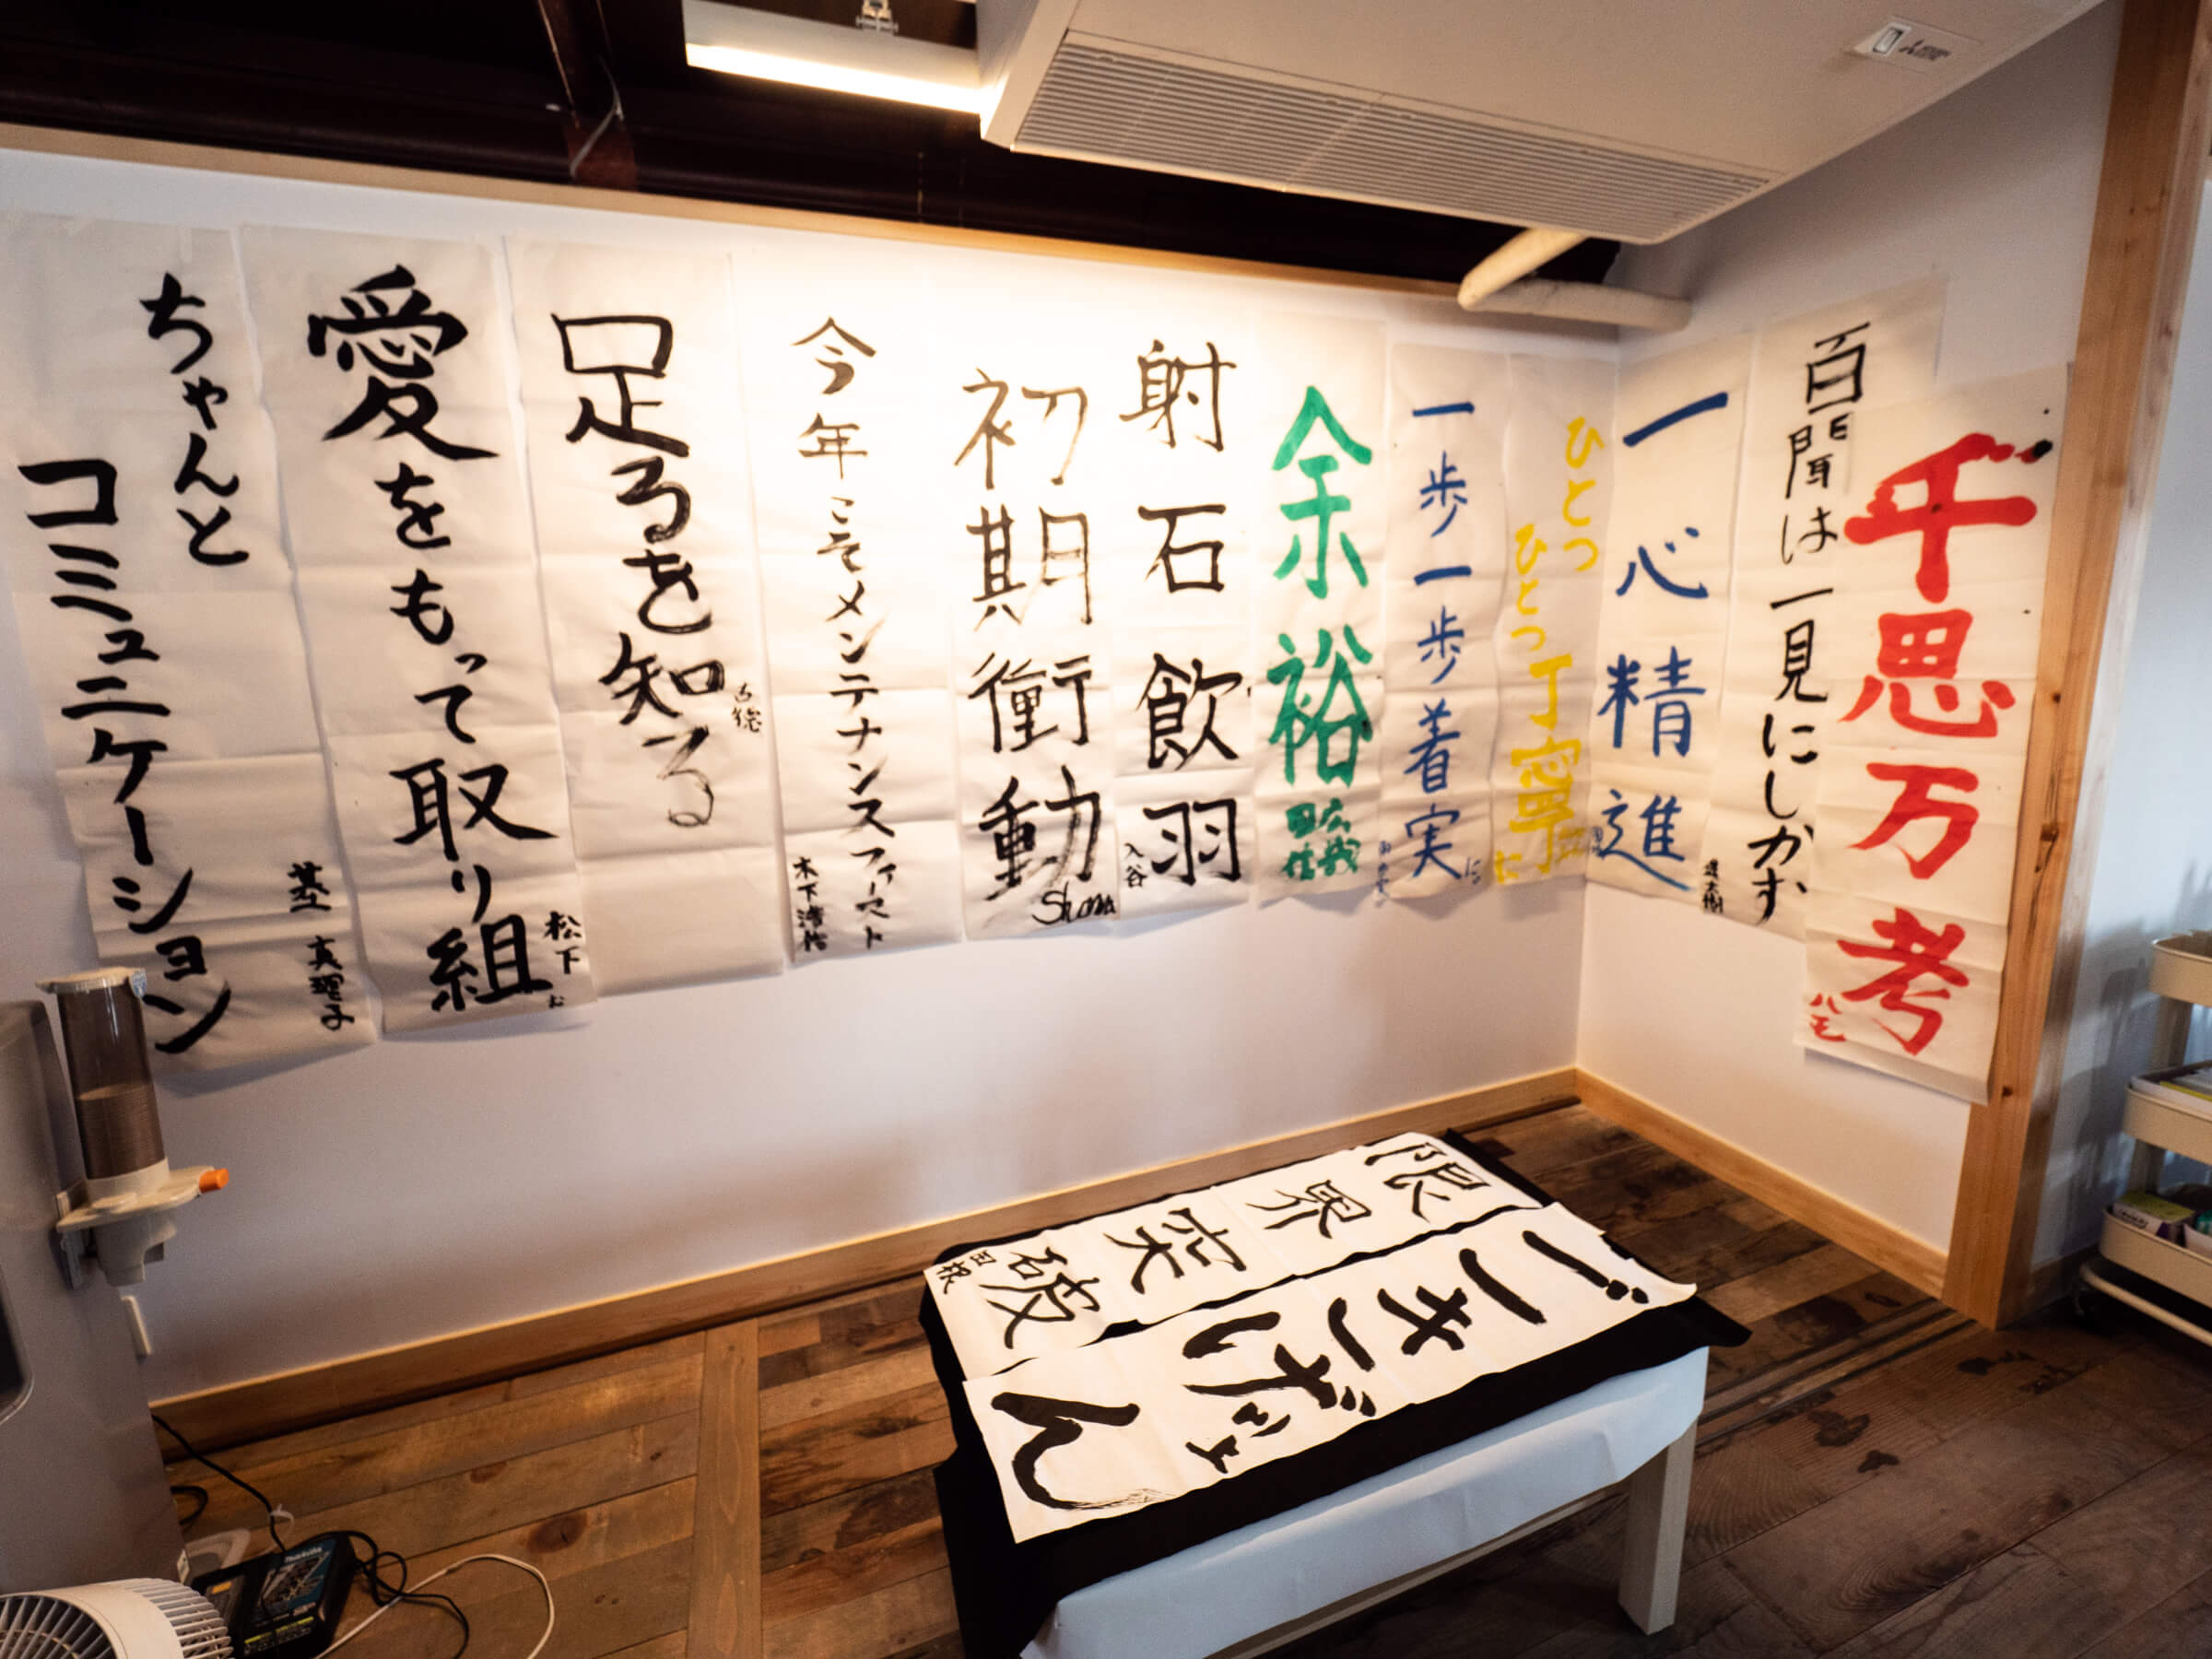 千思万考
ハモ
百聞は一見にしかず
一心精進
ひとつ
ひとつ丁寧に
一歩一歩着実に
余裕
射石飲羽
入谷
初期衝動
Shona
今年こそメンテナンスファースト
足るを知る
愛をもって取り組
松下
ちゃんと
コミュニケーション
真理子
限界突破
ごきげんよ
makita